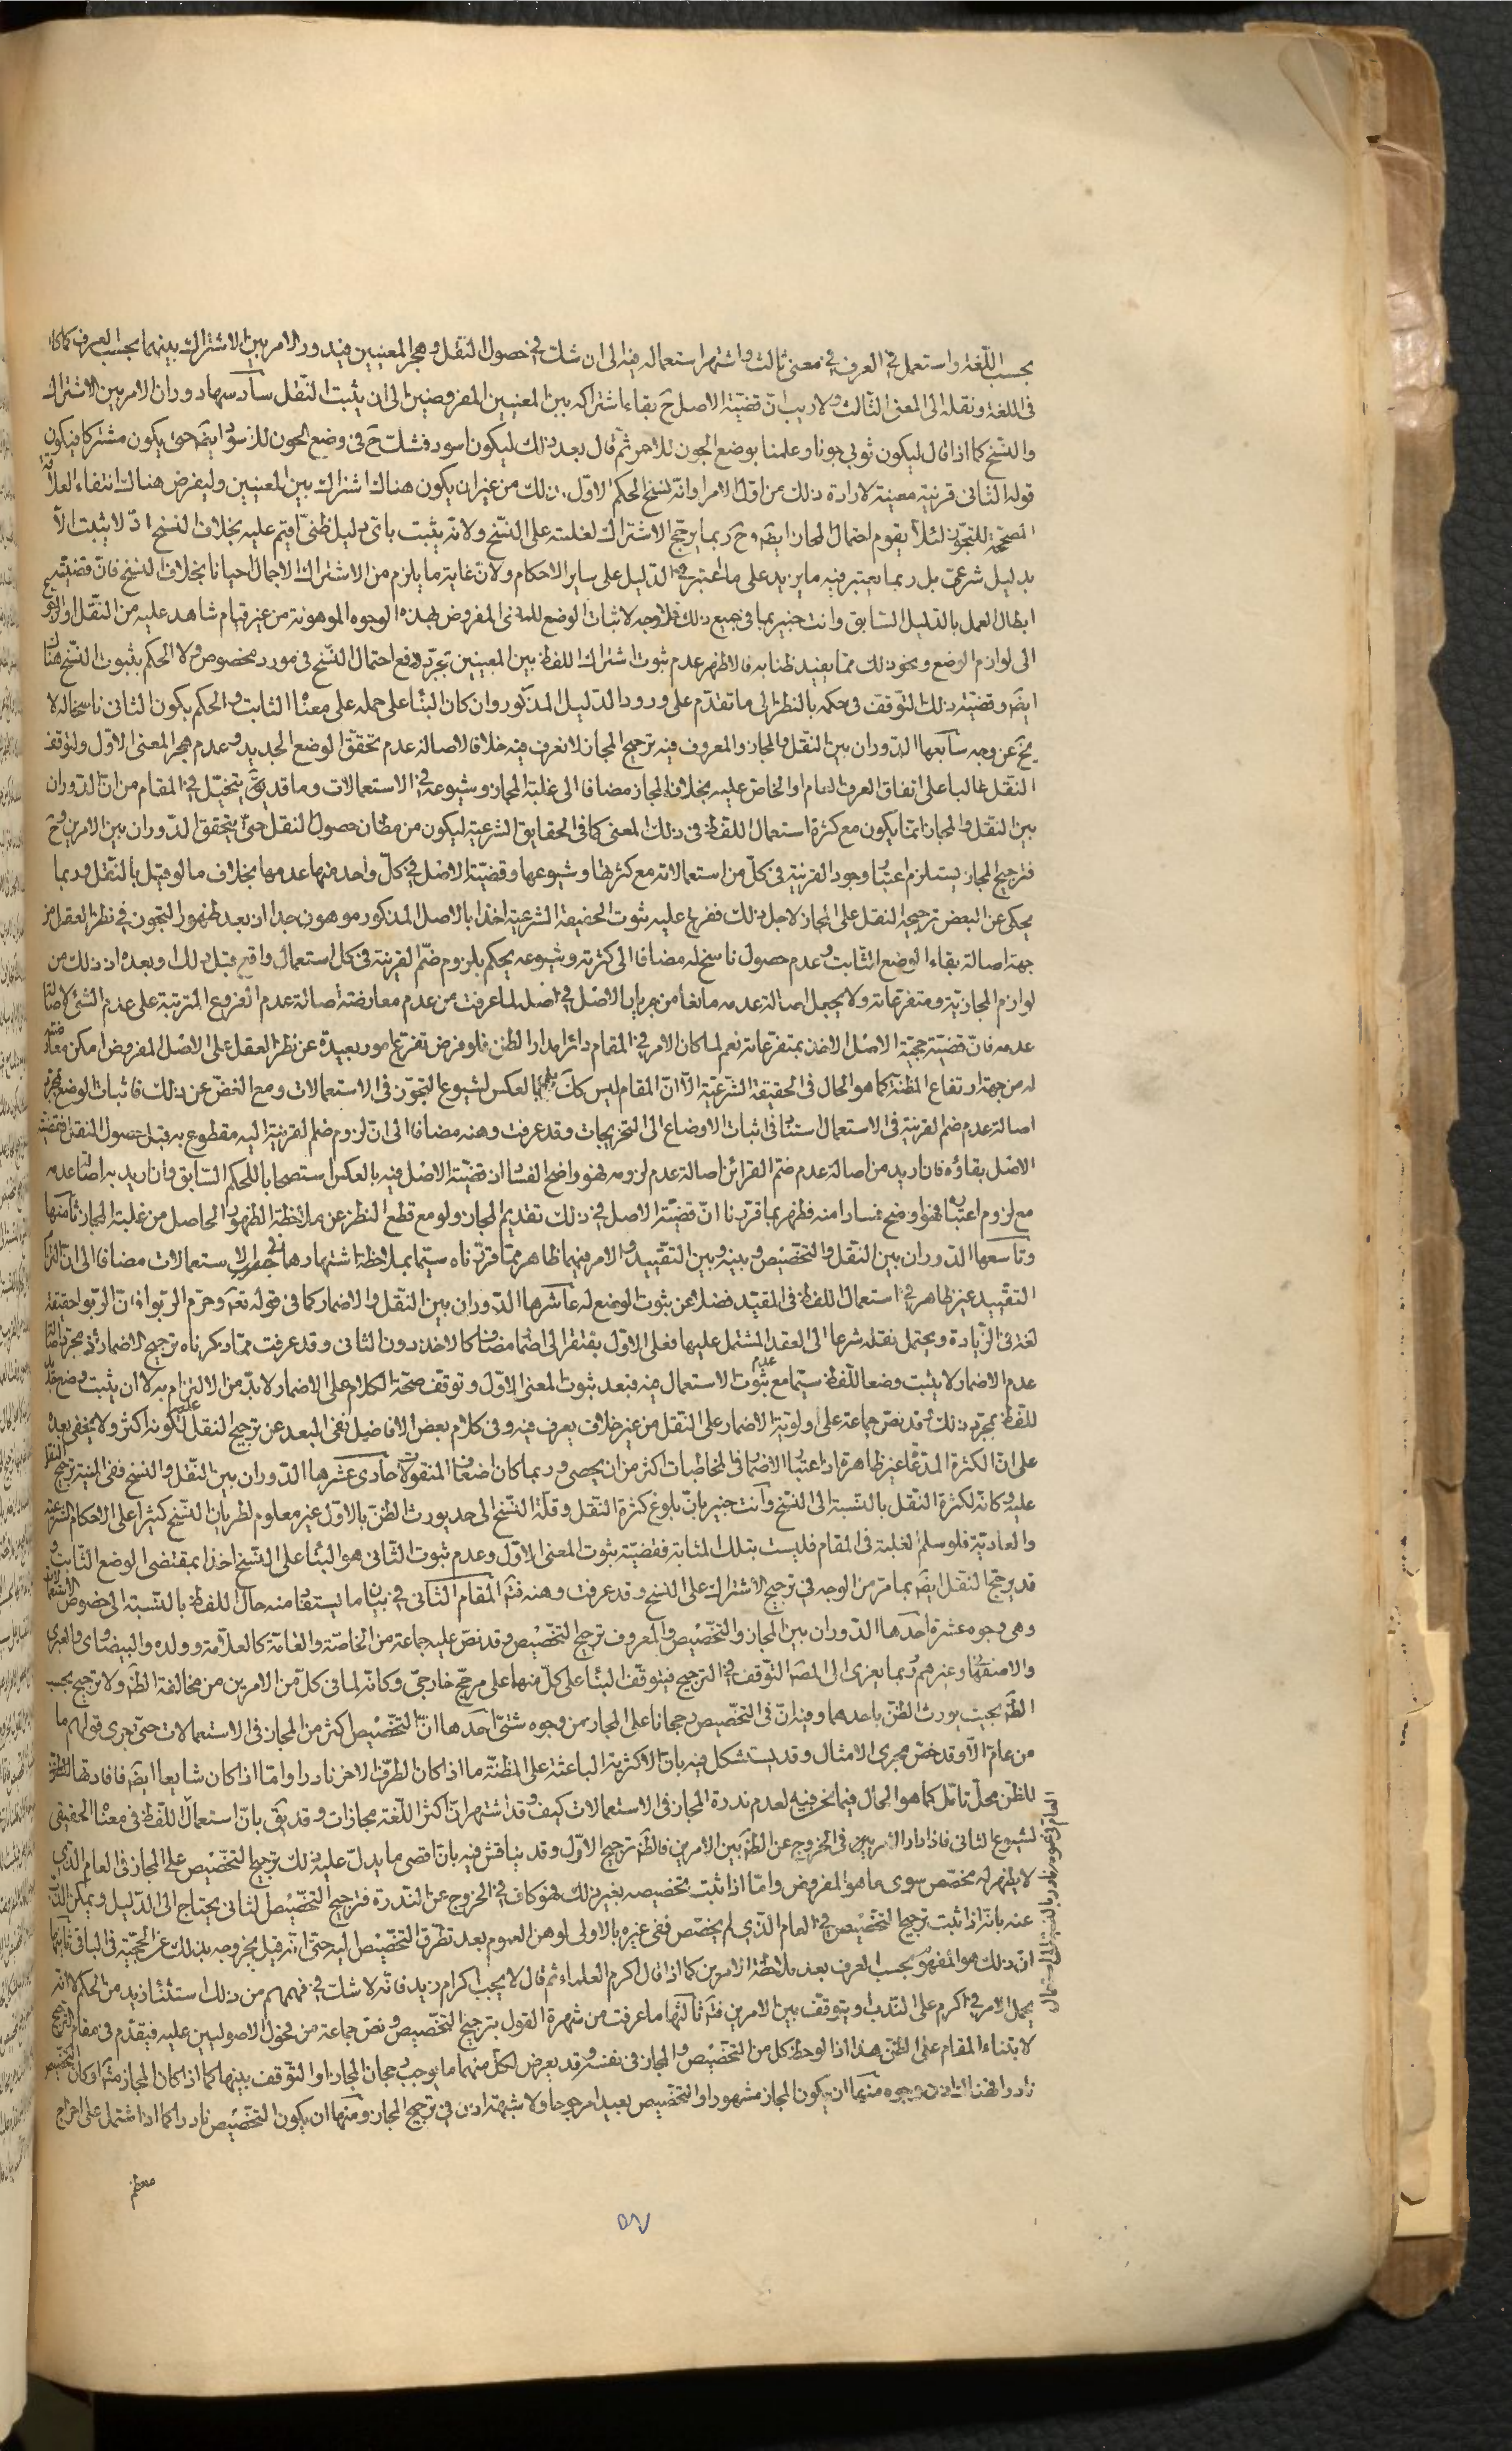 بحسب اللّغة واستعمل في العرف في معنى ثالث واشتهر استعماله فيه الى ان شك في حصول النقل وهجر المعنيين فيدور الامر بين الاشتراك بينهما بحسب العرف كما كان
في اللغة ونقله الى المعنى الثّالث ولا ريب ان قضيّة الاصل ح بقاء اشتراكه بين المعنيين المفروضين الى ان يثبت النّقل سادسها دوران الامر بين الاشتراك
والنّسخ كما اذا قال ليكون ثوبي جونا وعلمنا بوضع الجون للاحمر ثمّ قال بعد ذلك ليكون اسود فشك ح في وضع الجون للاسود ايضا حتى يكون مشتركا فيكون
قوله الثانى قرينة معينة لارادة ذلك من اوّل الامر او انّه نسخ الحكم الاوّل من غير ان يكون هناك اشتراك بين المعنيين وليفرض هناك انتفاء العلاقة
المصحّحة للتجوّز لئلّا يقوم احتمال المجاز ايضا وح ربما يرجّح الاشتراك لغلبته على النّسخ ولانّه يثبت باىّ دليل ظنىّ اقيم عليه بخلاف النسخ اذ لا يثبت الّا
بدليل شرعىّ بل ربما يعتبر فيه ما يزيد على ما اعتبر في الدّليل على ساير الاحكام ولانّ غاية ما يلزم من الاشتراك الاجمال احيانا بخلاف النسخ فانّ قضيته
ابطال العمل بالدّليل السّابق وانت خبير بما في جميع ذلك فلا وجه لاثبات الوضع للمعنى المفروض بهذه الوجوه الموهونة من غير قيام شاهد عليه من النّقل او الرجوع
الى لوازم الوضع ونحو ذلك ممّا يفيد ظنا به فالاظهر عدم ثبوت اشتراك اللفظ بين المعنيين بمجرّد دفع احتمال النّسخ في مورد مخصوص ولا الحكم بثبوت النّسخ هناك
ايضا وقضيّة ذلك التّوقف في حكمه بالنظر الى ما تقدّم على ورود الدّليل المذكور وان كان البناء على حمله على معناه الثابت والحكم بكون الثانى ناسخا له لا
يخ عن وجه سابعها الدّوران بين النّقل والمجاز والمعروف فيه ترجيح المجاز لا نعرف فيه خلافا لاصالة عدم تحقّق الوضع الجديد وعدم هجر المعنى الاوّل ولتوقف
النّقل غالبا على اتفاق العرف العام او الخاص عليه بخلاف المجاز مضافا الى غلبة المجاز وشيوعه في الاستعمالات وما قد يتخيّل في المقام من انّ الدّوران
بين النقل والمجاز انّما يكون مع كثرة استعمال اللفظ في ذلك المعنى كما في الحقايق الشرعيّة ليكون من مظان حصول النقل حتّى يتحقق الدّوران بين الامرين وح
فترجيح المجاز يستلزم اعتبار وجود القرينة في كلّ من استعمالاته مع كثرتها وشيوعها وقضيّة الاصل في كلّ واحد منها عدمها بخلاف ما لو قيل بالنّقل وربما
يحكى عن البعض ترجيح النقل على المجاز لاجل ذلك ففرع عليه ثبوت الحقيقة الشرعيّة اخذا بالاصل المذكور موهون جدا اذ بعد ظهور التجوز في نظر العقل من
جهة اصالة بقاء الوضع الثّابت وعدم حصول ناسخ له مضافا الى كثرته وشيوعه يحكم بلزوم ضمّ القرينة في كل استعمال واقع قبل ذلك او بعده اذ ذلك من
لوازم المجازيّة ومتفرعاته ولا يجعل اصالة عدمه مانعا من جريان الاصل في اصله لما عرفت من عدم معارضة اصالة عدم الفروع المترتبة على عدم الشئ لاصالة
عدمه فانّ قضيّة حجيّة الاصل الاخذ بمتفرعاته نعم لما كان الامر في المقام دائرا مدار الظن فلو فرض تفرّع امور بعيدة عن نظر العقل على الاصل المفروض امكن معارضته
له من جهة ارتفاع المظنّة كما هو الحال في الحقيقة الشّرعيّة الّا انّ المقام ليس كك بل بالعكس لشيوع التجوّز في الاستعمالات ومع الغضّ عن ذلك فاثبات الوضع بمجرّد
اصالة عدم ضم القرينة في الاستعمال استناد في اثبات الاوضاع الى التخريجات وقد عرفت وهنه مضافا الى انّ لزوم ضم القرينة اليه مقطوع به قبل حصول النّقل فقضيّة
الاصل بقاؤه فان اريد من اصالة عدم ضمّ القرائن اصالة عدم لزومه فهو واضح الفساد اذ قضيّة الاصل فيه بالعكس استصحابا للحكم السّابق وان اريد به اصالة عدمه
مع لزوم اعتباره فهو اوضح فسادا منه فظهر بما قررنا انّ قضيّة الاصل في ذلك تقديم المجاز ولو مع قطع النّظر عن ملاحظة الظهور الحاصل من غلبة المجاز ثامنها
وتاسعها الدّوران بين النّقل والتخصيص وبينه وبين التقييد والامر فيهما ظاهر ممّا قررناه سيّما بملاحظة اشتهارهما في الاستعمالات مضافا الى انّ
التقييد غير ظاهر في استعمال اللفظ في المقيّد فضلا عن ثبوت الوضع له عاشرها الدّوران بين النّقل والاضمار كما في قوله تعه وحرّم الربوا فانّ الرّبوا حقيقة
لغة في الزّيادة ويحتمل نقله شرعا الى العقد المشتمل عليها فعلى الاوّل يفتقر الى اضمار مضاف كالاخذ دون الثانى وقد عرفت ممّا ذكرناه ترجيح الاضمار اذ مجرّد اصالة
عدم الاضمار لا يثبت وضعا للّفظ سيّما مع عدم ثبوت الاستعمال فيه فبعد ثبوت المعنى الاوّل وتوقف صحّة الكلام على الاضمار لا بدّ من الالتزام به لا ان يثبت وضع جديد
للّفظ بمجرّد ذلك وقد نصّ جماعة على اولويّة الاضمار على النّقل من غير خلاف يعرف فيه وفي كلام بعض الافاضل نفى البعد عن ترجيح النقل عليه لكونه اكثر ولا يخفى بعده
على انّ الكثرة المدّعاة غير ظاهرة اذ اعتبار الاضمار في المخاطبات اكثر من ان يحصى وربما كان اضعاف المنقولات حادى عشرها الدّوران بين النّقل والنسخ ففى المنية ترجيح النقل
عليه وكانه لكثرة النّقل بالنّسبة الى النسخ وانت خبير بانّ بلوغ كثرة النّقل وقلّة النّسخ الى حد يورث الظنّ بالاوّل غير معلوم لطريان النّسخ كثيرا على الاحكام الشرعيّة
والعاديّة فلو سلم الغلبة في المقام فليست بتلك المثابة فقضيّة ثبوت المعنى الاوّل وعدم ثبوت الثّانى هو البناء على النّسخ اخذا بمقتضى الوضع الثّابت و
قد يرجّح النقل ايضا بما مرّ من الوجه في ترجيح الاشتراك على النسخ وقد عرفت وهنه المقام الثّانى في بيان ما يستفاد منه حال اللفظ بالنّسبة الى خصوص الاستعمالات
وهى وجوه عشرة احدها الدّوران بين المجاز والتّخصيص والمعروف ترجيح التخصيص وقد نصّ عليه جماعة من الخاصّة والعامّة كالعلّامة وولده والبيضاوى والعبرى
والاصفهانى وغيرهم وربما يعزى الى المصنّف التّوقف في الترجيح فيتوقّف البناء على كلّ منهما على مرجّح خارجىّ وكانّه لما في كلّ من الامرين من مخالفة الظّه ولا ترجيح بحسب
الظّه بحيث يورث الظّنّ باحدهما وفيه انّ في التّخصيص رجحانا على المجاز من وجوه شتّى احدها انّ التّخصيص اكثر من المجاز في الاستعمالات حتّى جرى قولهم ما
من عام الّا وقد خصّ مجرى الامثال وقد يستشكل فيه بانّ الاكثريّة الباعثة على المظنّة ما اذا كان الطرف الاخر نادرا وامّا اذا كان شايعا ايضا فافادتها
للظّن محلّ تامّل كما هو الحال فيما نحن فيه لعدم ندرة المجاز في الاستعمالات كيف وقد اشتهر انّ اكثر اللّغة مجازات وقد يق بانّ استعمال اللّفظ في معناه الحقيقى
لشيوع الثانى فاذا دار الامر في الخروج عن الظّه بين الامرين فالظّه ترجيح الاوّل وقد يناقش فيه بانّ اقصى ما يدلّ عليه ذلك ترجيح التّخصيص على المجاز في العام الّذى
لا يظهر له مخصّص سوى ما هو المفروض وامّا اذا ثبت تخصيصه بغير ذلك فهو كاف في الخروج عن النّدرة فترجيح التّخصيص الثانى يحتاج الى الدّليل ويمكن الذّبّ
عنه بانّه اذا ثبت ترجيح التّخصيص في العام الّذى لم يخصّص ففى غيره بالاولى لوهن العموم بعد تطرّق التّخصيص اليه حتّى انّه قيل بخروجه بذلك عن الحجّيّة في الباقى ثانيها
انّ ذلك هو المفهوم بحسب العرف بعد ملاحظة الامرين كما اذا قال اكرم العلماء ثم قال لا يجب اكرام زيد فانّه لا شك في فهمهم من ذلك استثناء زيد من الحكم لا انّه
يحمل الامر في اكرم على النّدب ويتوقّف بين الامرين ثالثها ما عرفت من شهرة القول بترجيح التّخصيص ونصّ جماعة من فحول الاصوليين عليه فيقدّم في مقام الترجيح
لابتناء المقام على الظّنّ هذا اذا لوحظ كل من التخصيص والمجاز في نفسه وقد يعرض لكلّ منهما ما يوجب رجحان المجاز او التّوقف بينهما كما اذا كان المجاز مشهورا او كان التخصيص
نادرا فهنا وجوه منها ان يكون المجاز مشهورا والتخصيص بعيدا مرجوحا ولا شبهة اذن في ترجيح المجاز ومنها ان يكون التخصيص نادرا كما اذا اشتمل على اخراج
معظم
۵۷